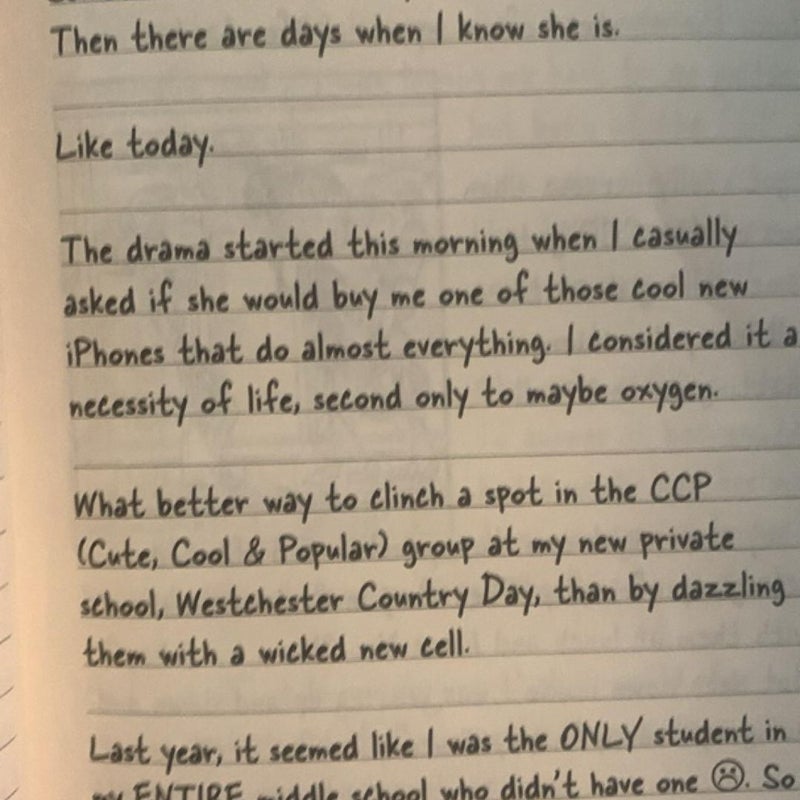 Then there are days when I know she is.
Like today.
The drama started this morning when I casually
asked if she would buy me one of those cool new
iPhones that do almost everything. I considered it a
necessity of life, second only to maybe oxygen.
What better way to clinch a spot in the CCP
(Cute, Cool & Popular) group at my new private
school, Westchester Country Day, than by dazzling
them with a wicked new cell.
Last year, it seemed like I was the ONLY student in
my ENTIRE middle school who didn't have one ☹. So